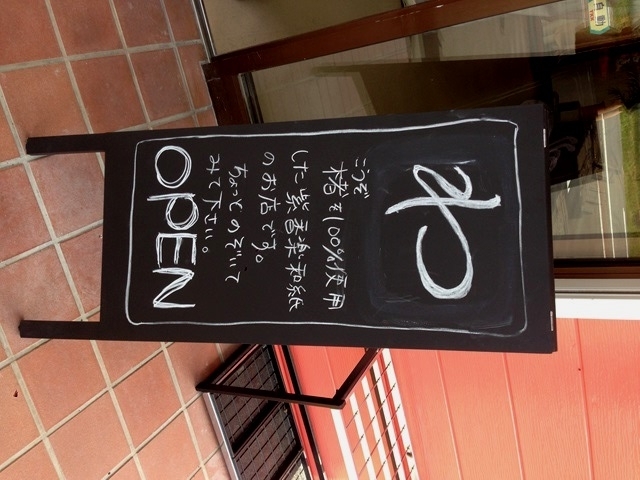 わ
こうぞ
楮を100%使用
した紫香楽和紙
のお店です。
ちょっとのぞいて
みて下さい。
OPEN
自動